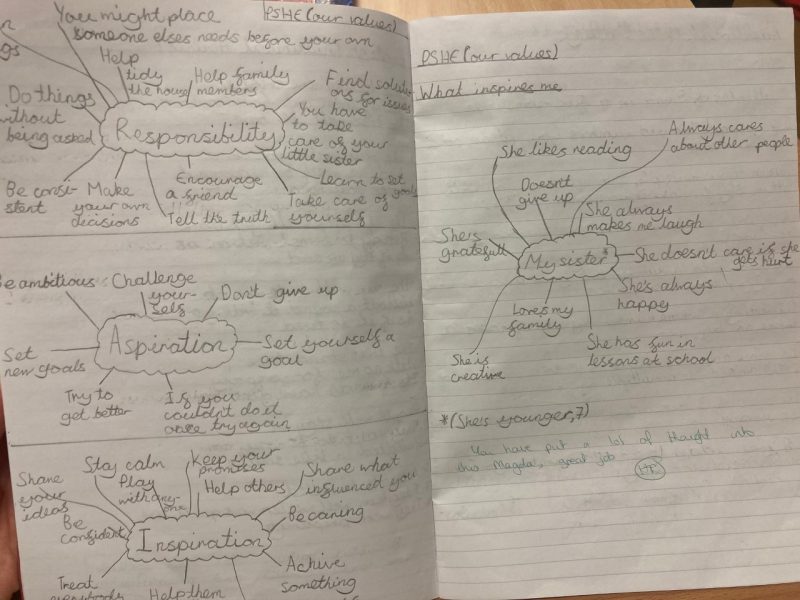 You might place
someone elses needs before your own
PSHE (our values)
Help
tidy
the house
Help family
members
Find soluti-
ons for issues
Do things
without
being asked
Responsibility
You have
to take
care of your
little sister
Learn to set
goals
Be consi-
stent
Make
your own
decisions
Tell the truth
Encourage
a friend
Take care of
yourself
Be ambitious
Challenge
your-
self
Don't give up
Aspiration
Set yourself a
goal
Set
new goals
Try to
get better
If you
couldn't do it
once try again
Share
your
ideas
Stay calm
Play
with any-
one
Keep your
promises
Help others
Share what
influenced you
Be caring
Be
confident
Inspiration
Achive
something
Treat
everybody
Help them
PSHE (our values)
What inspires me
She likes reading
Always cares
about other people
Doesn't
give up
She always
makes me laugh
She's
gratefull
My sister*
She doesn't care if she
gets hurt
She's always
happy
Loves my
family
She has fun in
lessons at school
She is
creative
*(She's younger, 7)
You have put a lot of thought into
this Magda, great job